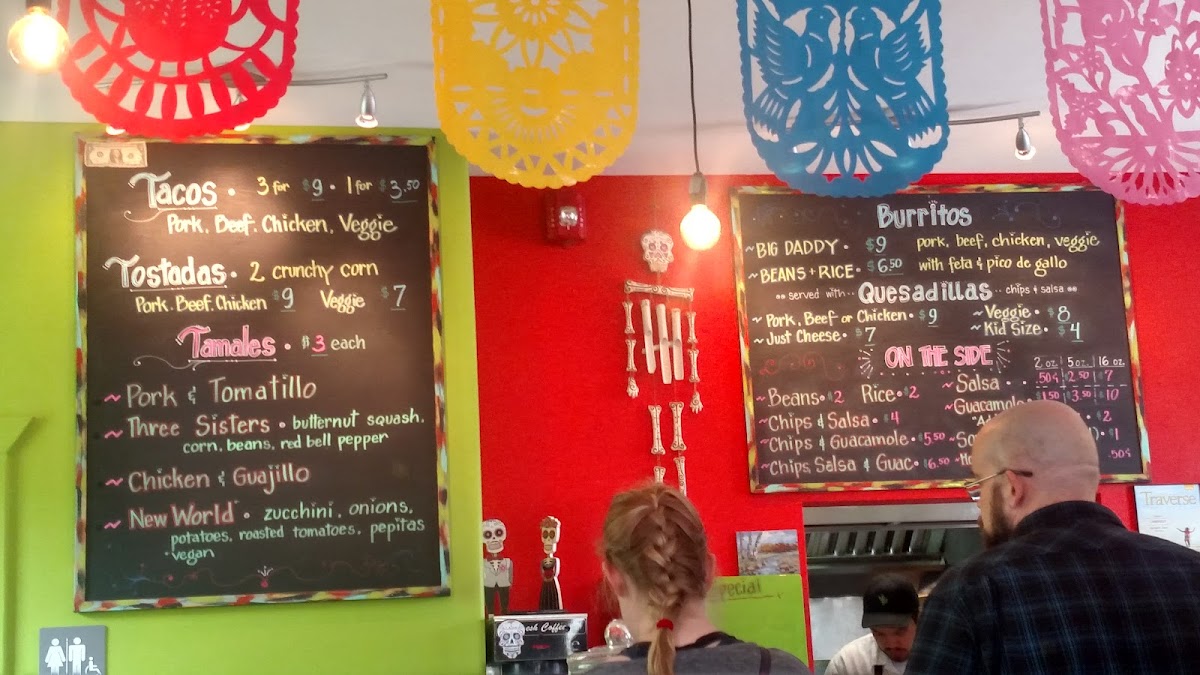 Tacos • 3 for $9 • 1 for $3.50
Pork, Beef, Chicken, Veggie
Tostadas • 2 crunchy corn
Pork, Beef, Chicken $9 Veggie $7
Tamales • $3 each
~ Pork & Tomatillo
~ Three Sisters • butternut squash,
corn, beans, red bell pepper
~ Chicken & Guajillo
~ New World • zucchini, onions,
potatoes, roasted tomatoes, pepitas
• vegan
Burritos
~ BIG DADDY • $9 pork, beef, chicken, veggie
~ BEANS + RICE • $6.50 with feta & pico de gallo
served with Quesadillas chips & salsa
~ Pork, Beef or Chicken • $9 ~ Veggie • $8
~ Just Cheese • $7 ~ Kid Size • $4
ON THE SIDE
2 oz. 5 oz. 16 oz.
~ Beans • $2 Rice • $2 ~ Salsa . . .50¢ $2.50 $7
~ Chips & Salsa • $4 ~ Guacamole $1.50 $3.50 $10
~ Chips & Guacamole • $5.50 $2
~ Chips, Salsa & Guac • $6.50 $1
.50¢
Fresh Coffee
Traverse